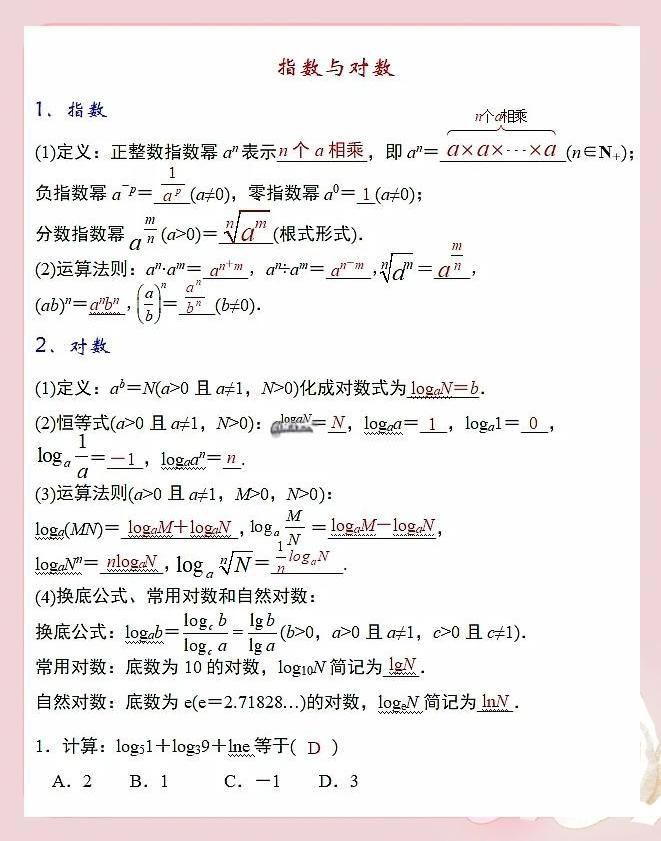 指数与对数
1、指数
n个a相乘
(1)定义：正整数指数幂 aⁿ 表示n 个 a 相乘，即 aⁿ＝a×a×···×a(n∈N₊)；
负指数幂 a⁻ᵖ＝1/aᵖ(a≠0)，零指数幂 a⁰＝1(a≠0)；
分数指数幂 a^(m/n)(a>0)＝ⁿ√(aᵐ)(根式形式).
(2)运算法则：aⁿ·aᵐ＝aⁿ⁺ᵐ，aⁿ÷aᵐ＝aⁿ⁻ᵐ,ⁿ√(aᵐ)＝a^(m/n)，
(ab)ⁿ＝aⁿbⁿ，(a/b)ⁿ＝aⁿ/bⁿ(b≠0).
2、对数
(1)定义：aᵇ＝N(a>0 且 a≠1，N>0)化成对数式为logₐN＝b.
(2)恒等式(a>0 且 a≠1，N>0)：a^(logₐN)＝N，logₐa＝1，logₐ1＝0，
logₐ(1/a)＝−1，logₐaⁿ＝n.
(3)运算法则(a>0 且 a≠1，M>0，N>0)：
logₐ(MN)＝logₐM＋logₐN，logₐ(M/N)＝logₐM－logₐN，
logₐNⁿ＝nlogₐN，logₐ ⁿ√N＝(1/n)logₐN.
(4)换底公式、常用对数和自然对数：
换底公式：logₐb＝(log_c b)/(log_c a)＝(lg b)/(lg a)(b>0，a>0 且 a≠1，c>0 且 c≠1).
常用对数：底数为 10 的对数，log₁₀N 简记为lgN.
自然对数：底数为 e(e＝2.71828…)的对数，logₑN 简记为lnN.
1．计算：log₅1＋log₃9＋lne 等于( D )
A．2 B．1 C．－1 D．3